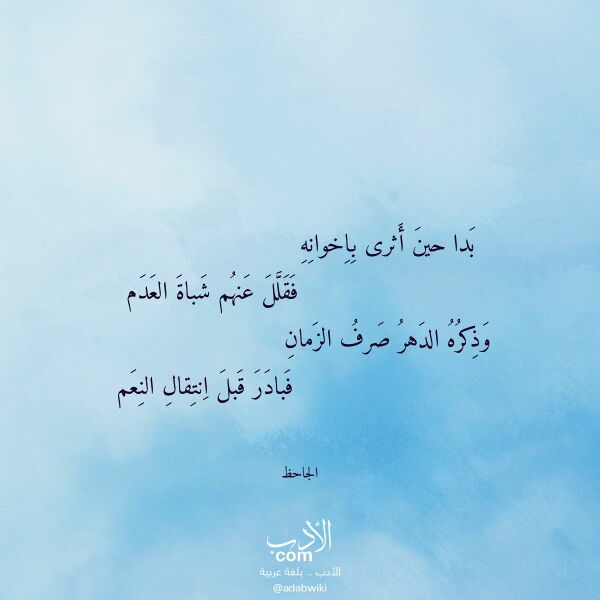 بَدا حينَ أَثرى بِاِخوانِهِ
فَفَلَّلَ عَنهُم شَباةَ العَدَم
وَذِكرُهُ الدَهرُ صَرفُ الزَمانِ
فَبادَرَ قَبلَ اِنتِقالِ النِعَم
الجاحظ
الأدب
com
الأدب .. بلغة عربية
@adabwiki